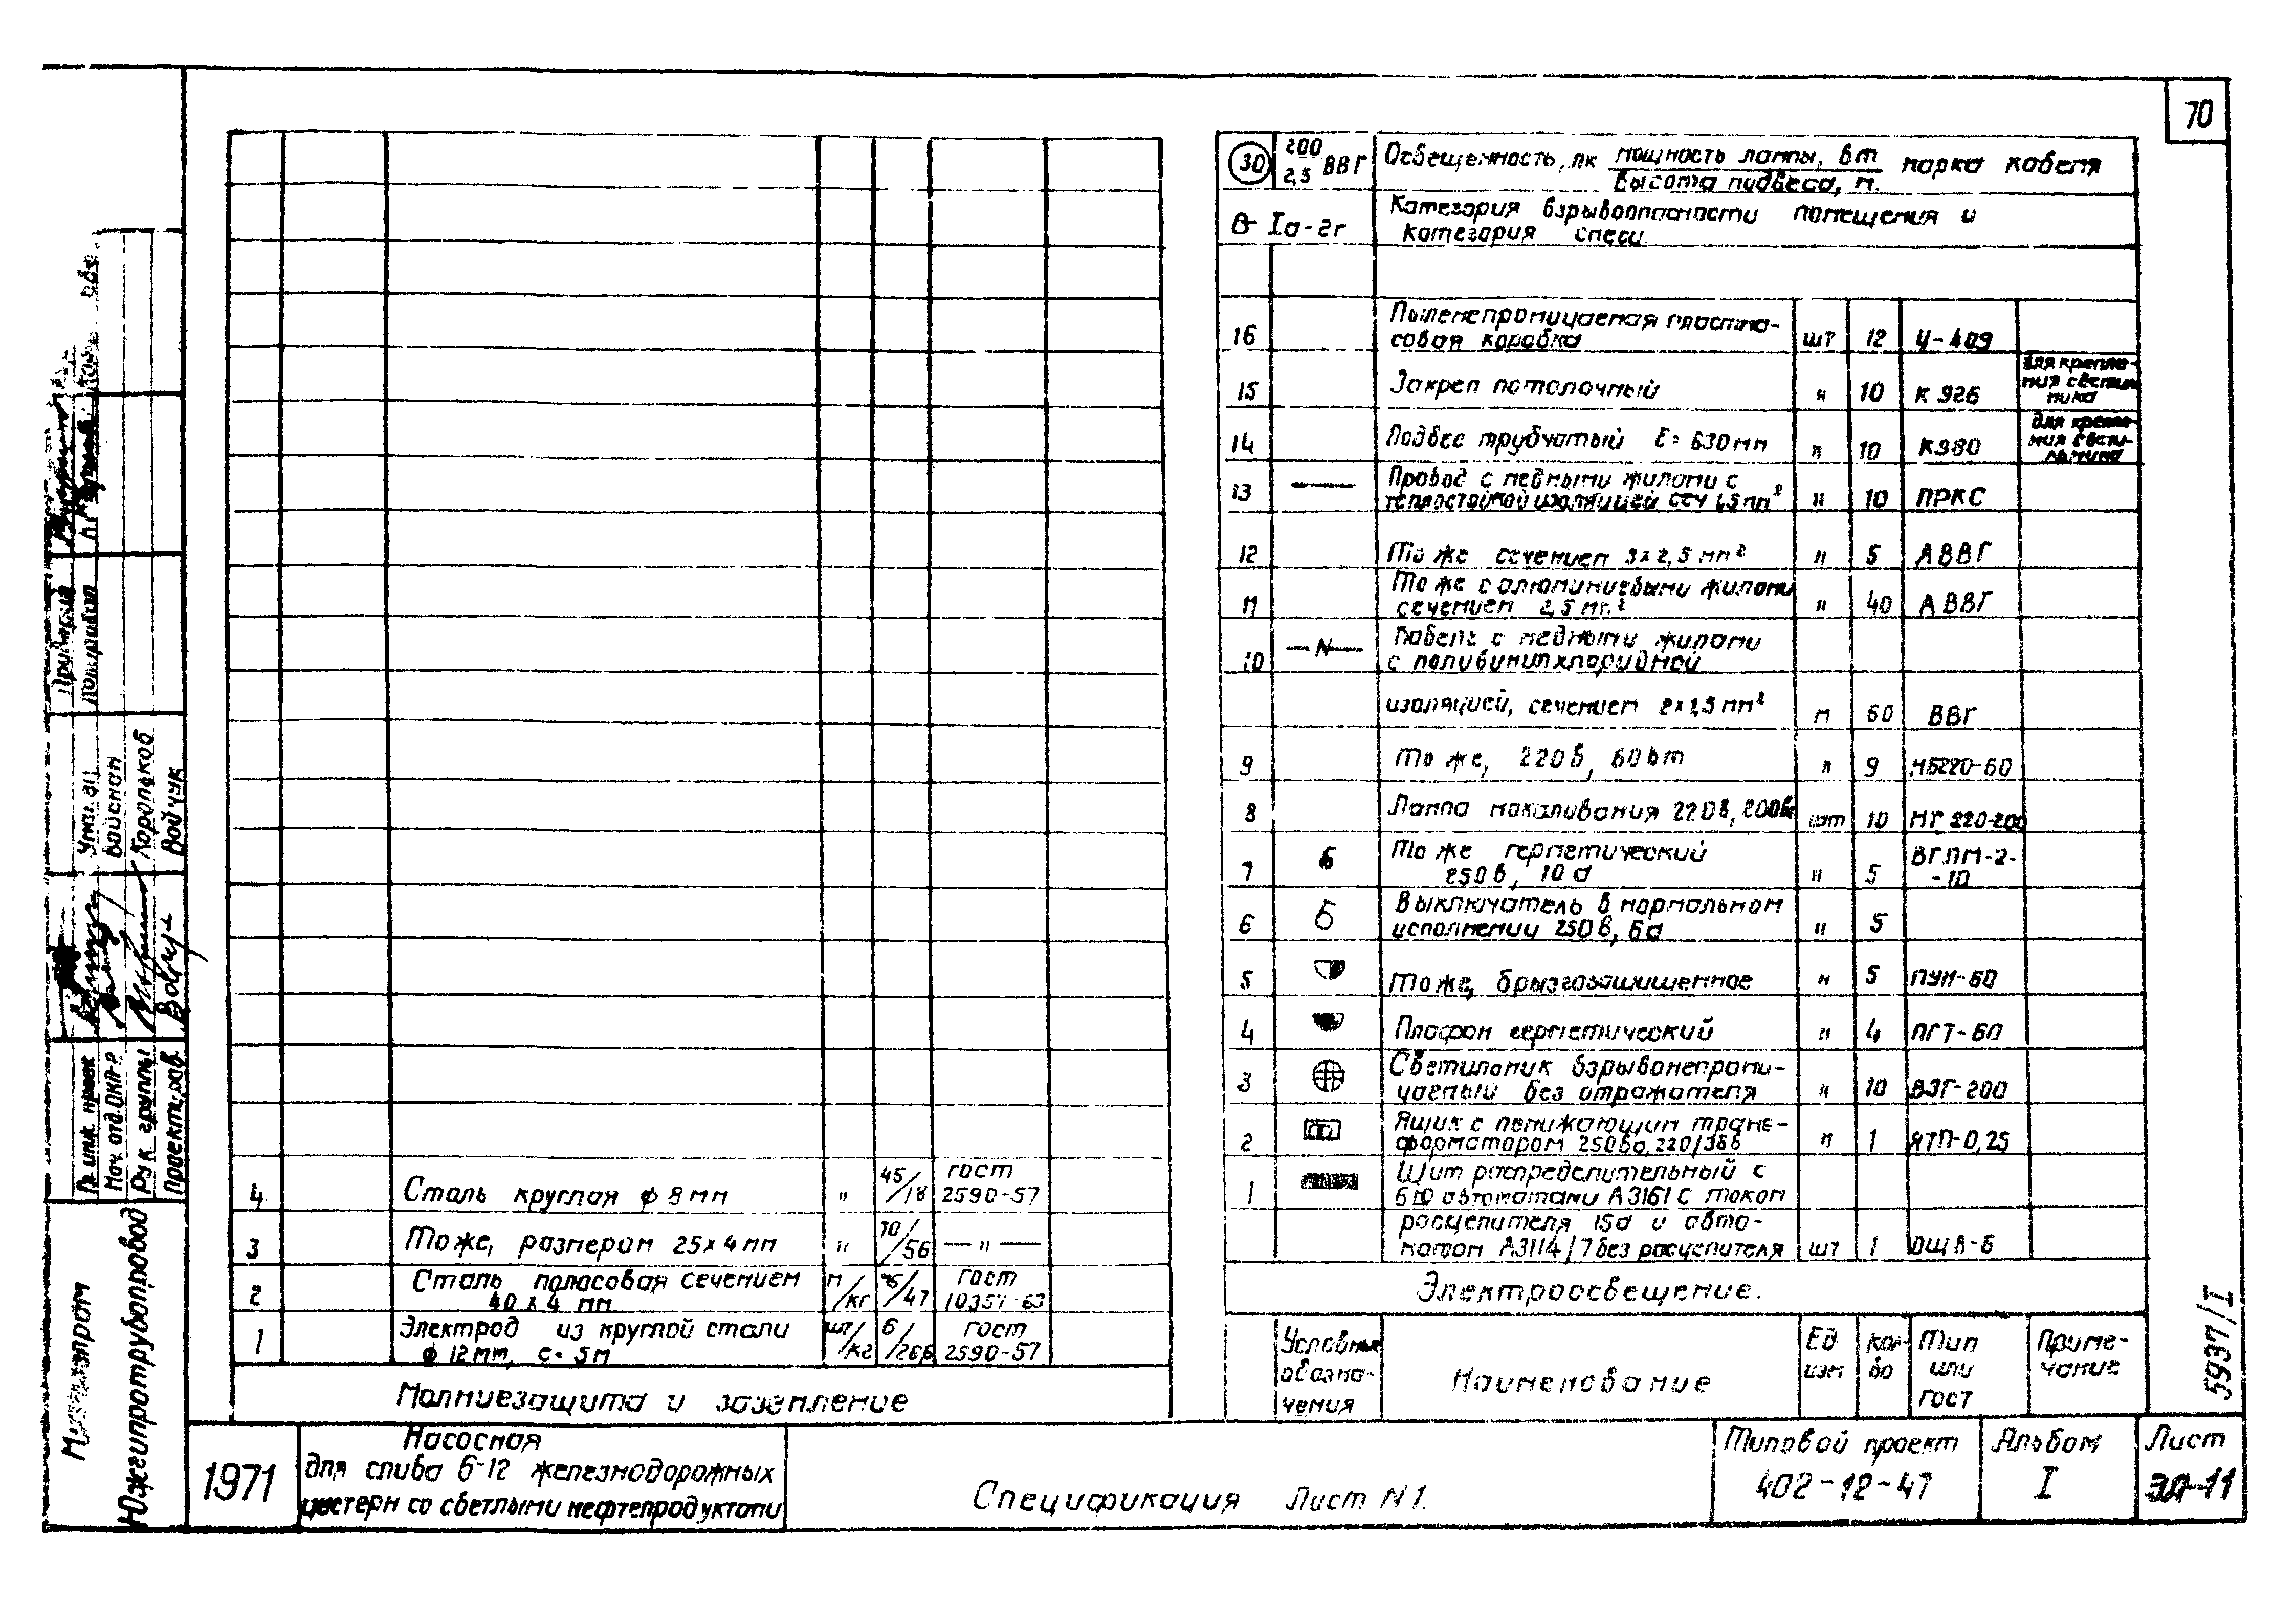 70
30 200/2,5 ВВГ Освещенность, лк мощность лампы, вт / высота подвеса, м. марка кабеля
В-Iа-2г Категория взрывоопасности помещения и
категория смеси.
16 Пыленепроницаемая пластмас-
совая коробка шт 12 У-409
15 Закреп потолочный " 10 К 926 для крепле-
ния светиль
ника
14 Подвес трубчатый ℓ= 630 мм " 10 К980 для крепле-
ния свети-
льника
13 Провод с медными жилами с
теплостойкой изоляцией сеч 1,5 мм² " 10 ПРКС
12 То же сечением 3х2,5 мм² " 5 АВВГ
11 То же с алюминиевыми жилами
сечением 2,5 мм² " 40 АВВГ
10 —N— Кабель с медными жилами
с поливинилхлоридной
изоляцией, сечением 2х1,5 мм² м 60 ВВГ
9 То же, 220в, 60вт " 9 НБ220-60
8 Лампа накаливания 220в, 200вт шт 10 НГ 220-200
7 То же герметический
250в, 10а " 5 ВГПМ-2-
-10
6 Выключатель в нормальном
исполнении 250в, 6а " 5
5 То же, брызгозащищенное " 5 ПУН-60
4 Плафон герметический " 4 ПГТ-60
3 Светильник взрывонепрони-
цаемый без отражателя " 10 ВЗГ-200
2 Ящик с понижающим транс-
форматором 250ва, 220/36в " 1 ЯТП-0,25
1 Щит распределительный с
6ю автоматами А3161 с током
расцепителя 15а и авто-
матом А3114/7 без расцепителя шт 1 ОЩВ-6
Электроосвещение.
Условные
обозна-
чения
Наименование
Ед
изм
кол-
во
Тип
или
гост
Приме-
чание
4 Сталь круглая ф 8 мм " 45/18 гост
2590-57
3 То же, размером 25х4 мм " 70/56 — " —
2 Сталь полосовая сечением
40 х 4 мм м/кг /47 гост
1 Электрод из круглой стали
ф 12 мм, ℓ= 5м шт/кг 6/26,6 гост
2590-57
Молниезащита и заземление
1971
Насосная
для слива 6-12 железнодорожных
цистерн со светлыми нефтепродуктами
Спецификация Лист N 1.
Типовой проект
402-12-47
Альбом
I
Лист
ЭЛ-11
5937/I
Южгипротрубопровод
Гл. инж. проек
Нач. отд. ОКПР
Рук. группы
Проектиров.
Вайсман
Корольков
Вовчук
Проверил